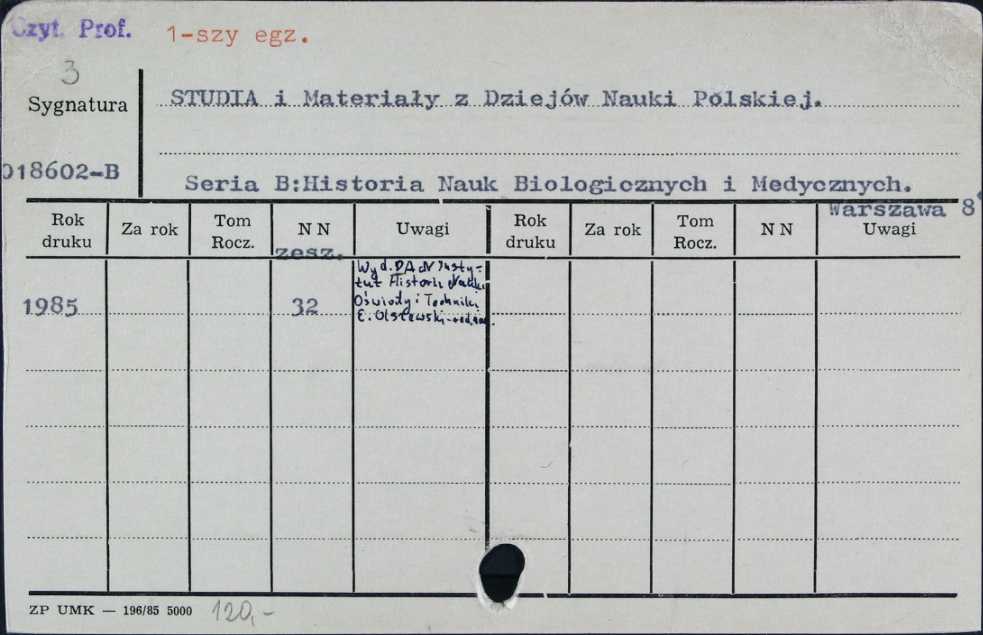 Czyt. Prof. 1-szy egz.
3
Sygnatura
STUDIA i Materiały z Dziejów Nauki Polskiej.
018602-B
Seria B:Historia Nauk Biologicznych i Medycznych.
Warszawa 8°
Rok druku Za rok Tom Rocz. N N Uwagi Rok druku Za rok Tom Rocz. N N Uwagi
zesz.
1985 32
Wyd. PAN Insty-
tut Historii Nauki
Oświaty i Techniki
E. Olszewski-
ZP UMK — 196/85 5000 120,-